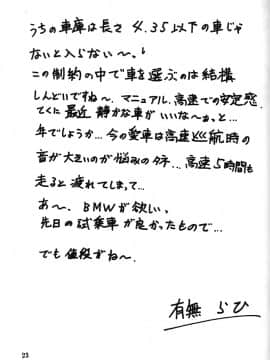 うちの車庫は長さ 4.35以下の車じゃ
ないと入らない〜、
この制約の中で車を選ぶのは結構
しんどいですね〜、マニュアル、高速での安定感、
てくに最近 静かな車がいいな〜ぁ、と…
年でしょうか… 今の愛車は高速巡航時の
音が大きいのが悩みのタネ… 高速5時間も
走ると 疲れてしまって…
あ〜、BMWが欲しい、
先日の試乗車が良かったもので…
でも値段がね〜
有無 らひ
23